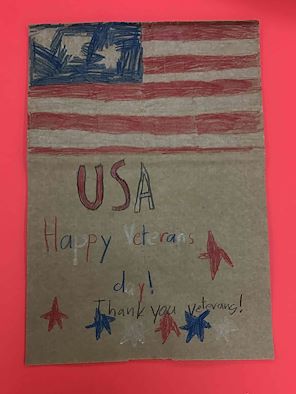 USA
Happy Veterans
day!
Thank you veterans!